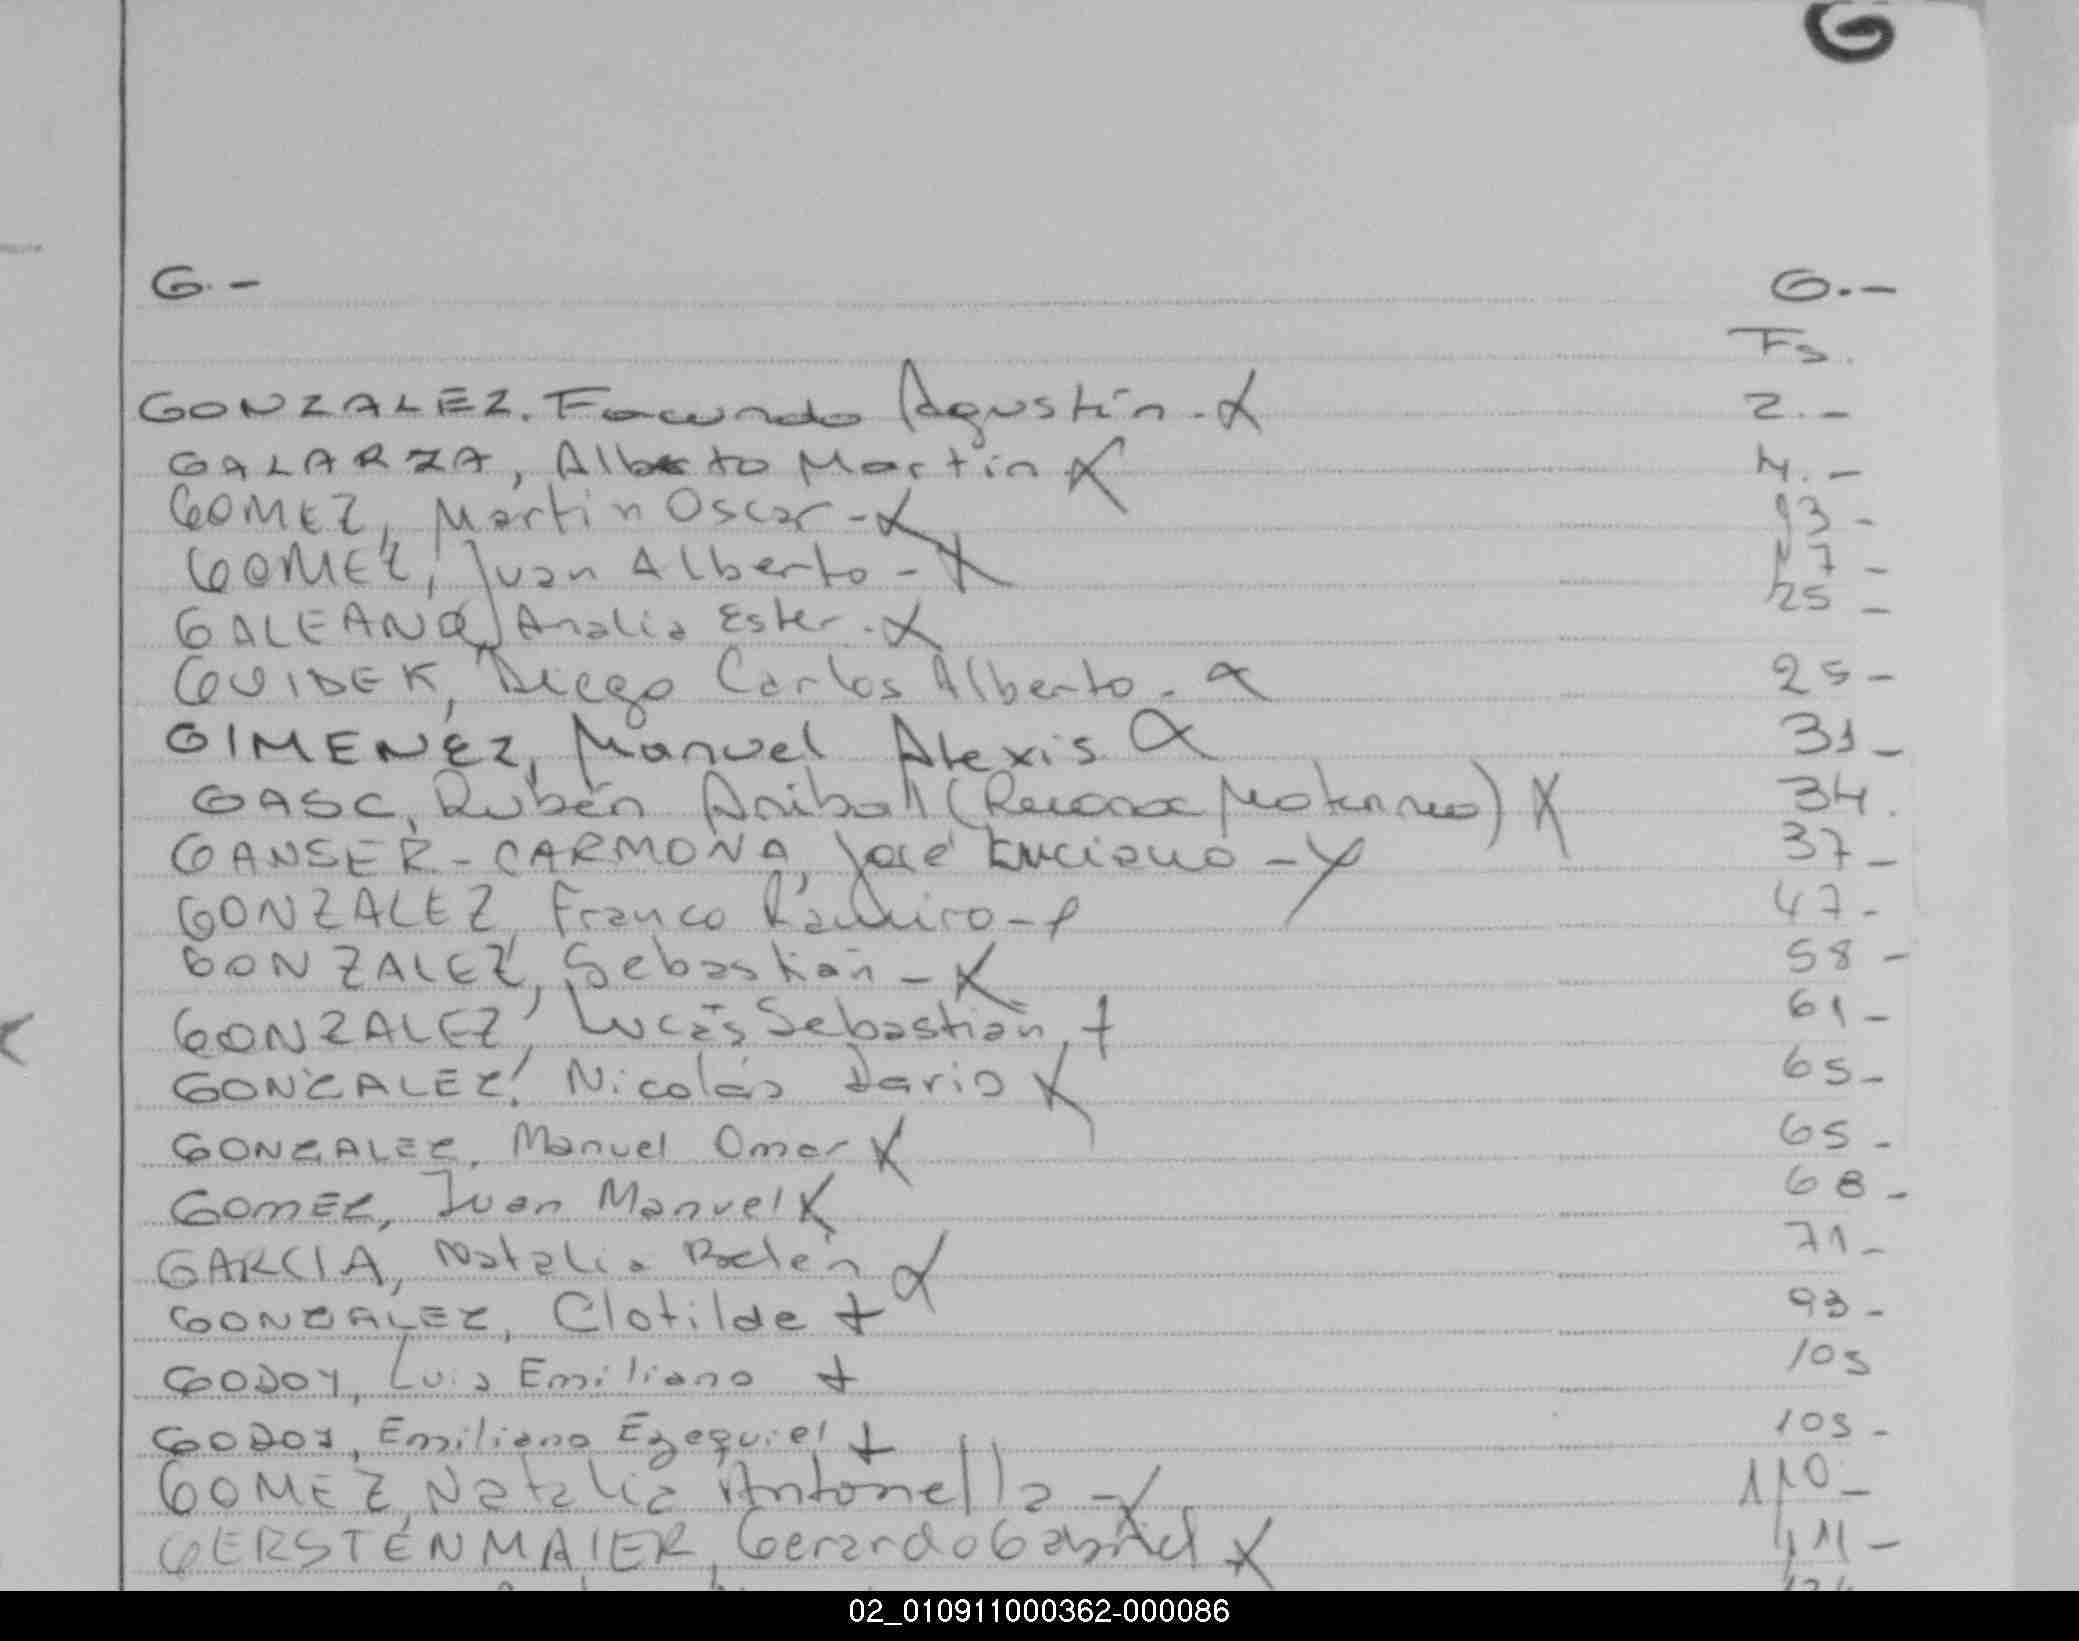 G
G.- G.-
Fs.
GONZALEZ. Facundo Agustín.- 2.-
GALARZA, Alberto Martín 4.-
GOMEZ, Martín Oscar- 13-
GOMEZ, Juan Alberto- 17-
GALEANO, Analia Ester.- 25-
GUIDEK, Diego Carlos Alberto- 25-
GIMENEZ, Manuel Alexis 31-
GASC, Rubén Anibal (Reconoc Materno) 34.
GANSER-CARMONA, José Luciano- 37-
GONZALEZ, Franco Ramiro- 47-
GONZALEZ, Sebastián- 58-
GONZALEZ, Lucas Sebastián, 61-
GONZALEZ, Nicolás Dario 65-
GONZALEZ, Manuel Omar 65-
GOMEZ, Juan Manuel 68-
GARCIA, Natalia Belén 71-
GONZALEZ, Clotilde 93-
GODOY, Luis Emiliano 103
GODOY, Emiliano Ezequiel 103-
GOMEZ, Natalia Antonella- 110-
GERSTENMAIER, Gerardo Gabriel 111-
02_010911000362-000086